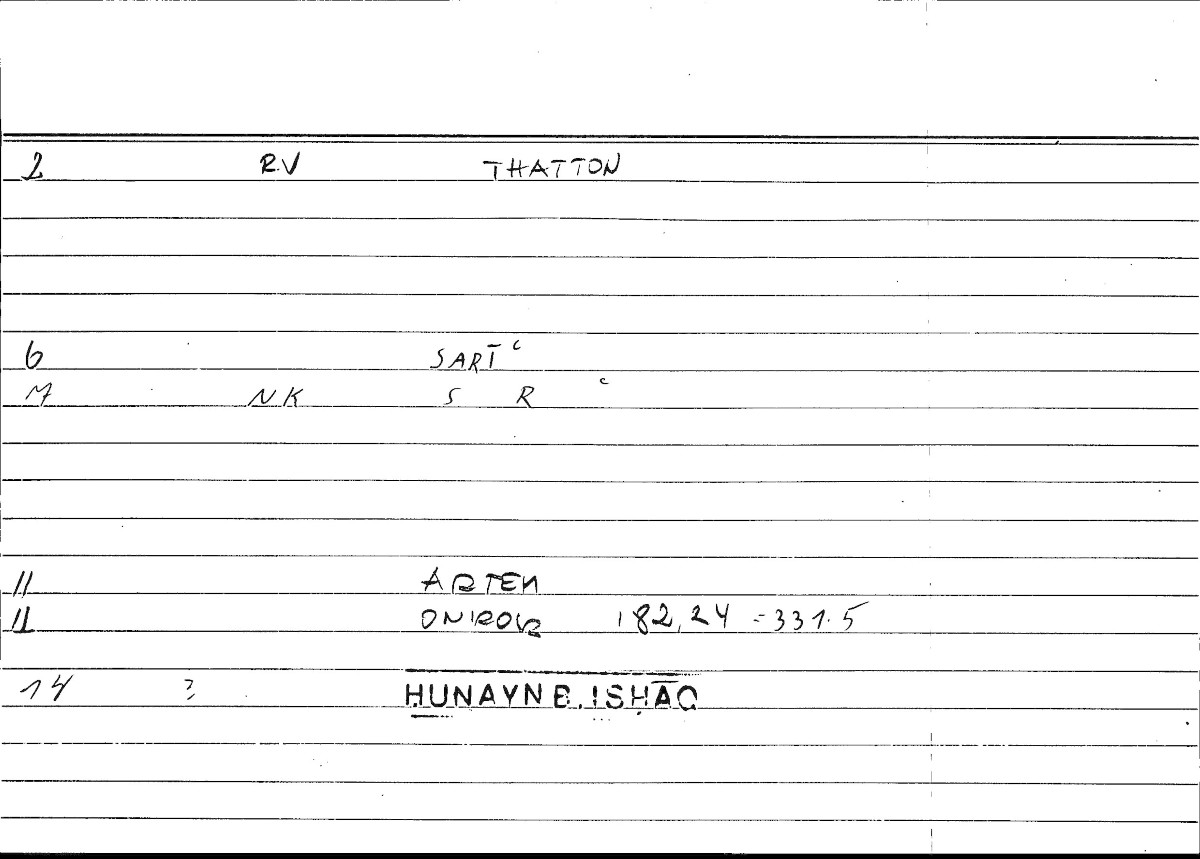 2 RV THATTON
6 SARĪ ͨ
NK S R ͨ
11 ARTEM
11 ONIROKR 182,24 = 331.5
14 ? ḤUNAYN B. ISḤĀQ